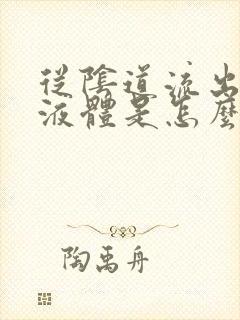 從陰道流出
液體是怎麼
陶禹舟